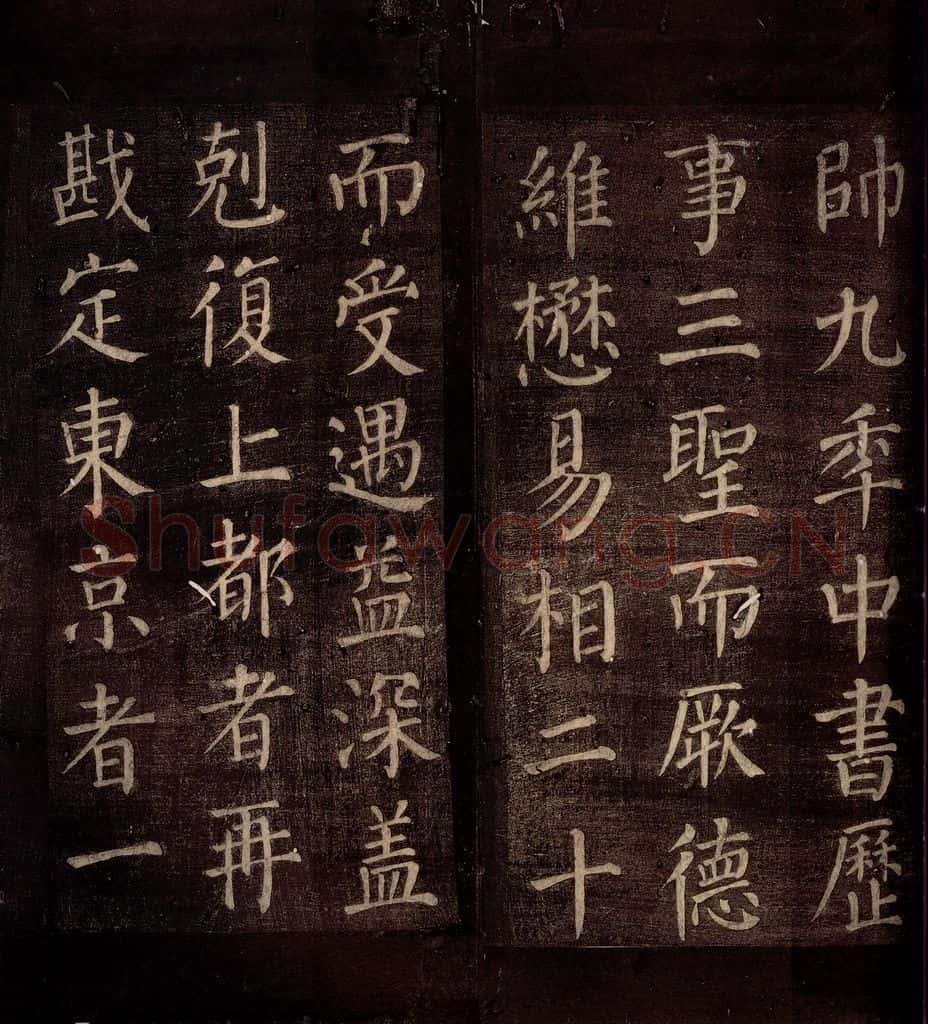 帥九秊中書歷
事三聖而厥德
維懋易相二十
而受遇益深盖
剋復上都者再
戡定東京者一
Shufawang.CN